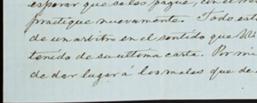 esperar que se les pague, con el
practique nuevamente. Todo est
de un arbitro en el sentido que
tenido de su ultima carta. Por mi
de dar lugar á los malos que de